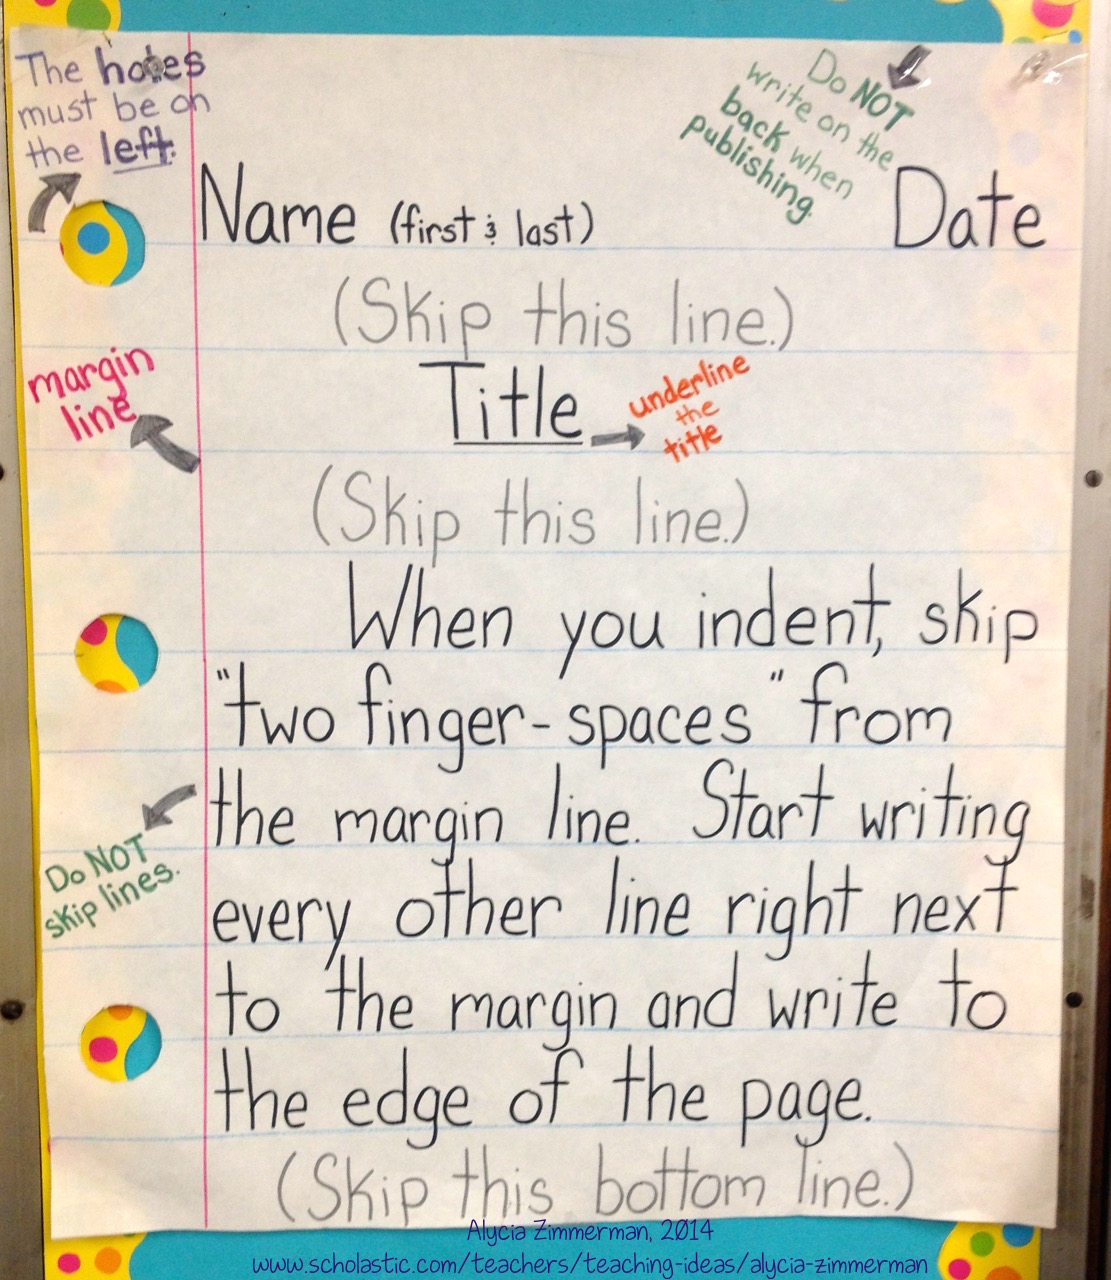 The holes
must be on
the left.
Do NOT
write on the
back when
publishing.
Name (first & last)
Date
(Skip this line.)
margin
line
Title
underline
the
title
(Skip this line.)
When you indent, skip
"two finger-spaces" from
the margin line. Start writing
Do NOT
skip lines.
every other line right next
to the margin and write to
the edge of the page.
(Skip this bottom line.)
Alycia Zimmerman, 2014
www.scholastic.com/teachers/teaching-ideas/alycia-zimmerman